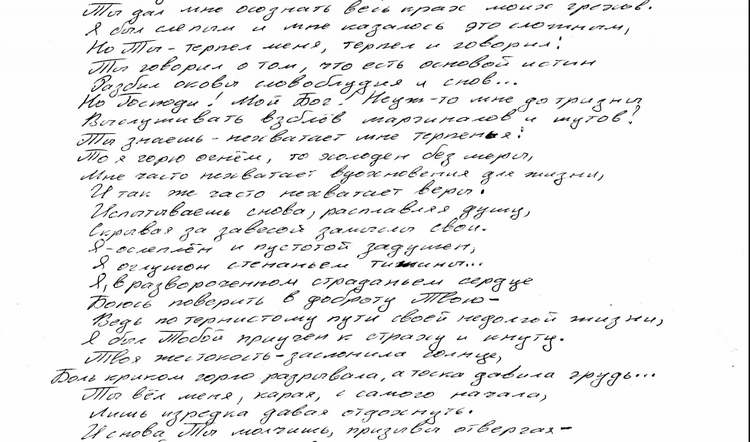 Ты дал мне осознать весь крах моих грехов.
Я был слепым и мне казалось это сложным,
Но Ты - терпел меня, терпел и говорил!
Ты говорил о том, что есть основой истин
Разбил оковы словоблудия и снов...
Но Господи! Мой Бог! Неуж-то мне до тризны
Выслушивать взблёв маргиналов и шутов?
Ты знаешь - нехватает мне терпенья:
То я горю огнём, то холоден без меры,
Мне часто нехватает вдохновения для жизни,
И так же часто нехватает веры.
Испытываешь снова, расплавляя душу,
Скрывая за завесой замыслы свои.
Я - ослеплён и пустотой задушен,
Я оглушон стенаньем тишины...
Я, в развороченном страданьем сердце
Боюсь поверить в доброту Твою -
Ведь по тернистому пути своей недолгой жизни,
Я был Тобой приучен к страху и кнуту.
Твоя жестокость - заслонила солнце,
Боль криком горло разрывала, а тоска давила грудь...
Ты вёл меня, карая, с самого начала,
Лишь изредка давая отдохнуть.
И снова Ты молчишь, призывы отвергая -